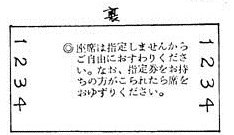 裏
1234
◎座席は指定しませんから
ご自由におすわりくださ
い。なお、指定券をお持
ちの方がこられたら席を
おゆずりください。
1234